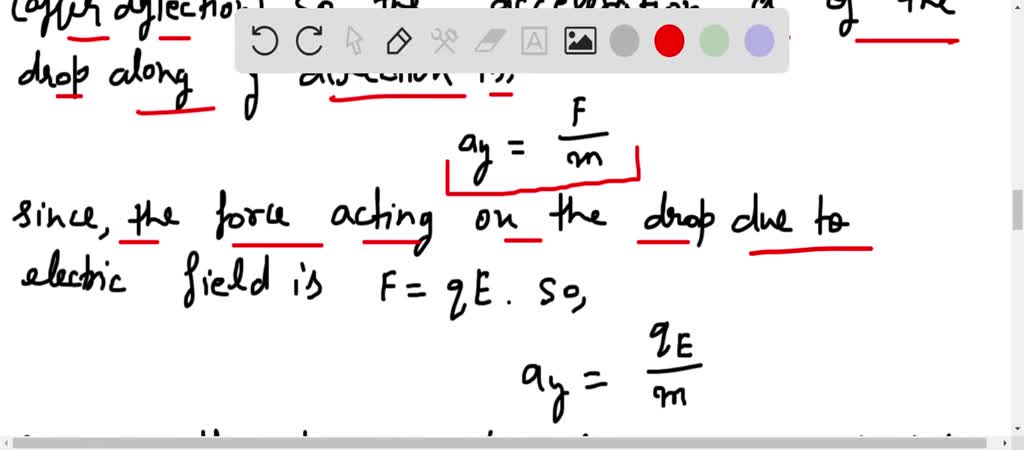 (after deflection) so the of the
drop along y direction is
ay = F/m
since, the force acting on the drop due to
electric field is F = qE. so,
ay = qE/m